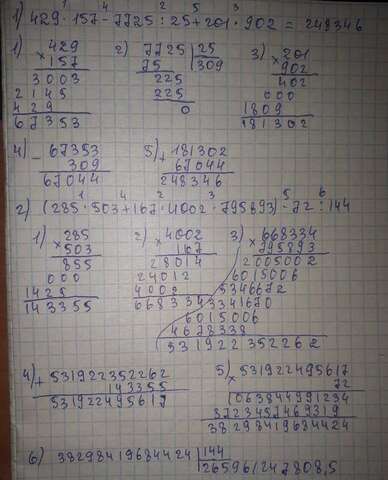 1) 429 · 157 - 7725 : 25 + 201 · 902 = 248346
1) × 429
157
3003
2145
429
67353
2) 7725 | 25
75 309
225
225
0
3) × 201
902
402
000
1809
181302
4) - 67353
309
67044
5) + 181302
67044
248346
2) (285 · 503 + 167 · 4002 · 795893) · 72 : 144
1) × 285
503
855
000
1425
143355
2) × 4002
167
28014
24012
4002
668334
3) × 668334
795893
2005002
6015006
5346672
3341670
6015006
4678338
531922352262
4) + 531922352262
143355
531922495617
5) × 531922495617
72
1063844991234
3723457469319
38298419684424
6) 38298419684424 | 144
265961247808,5